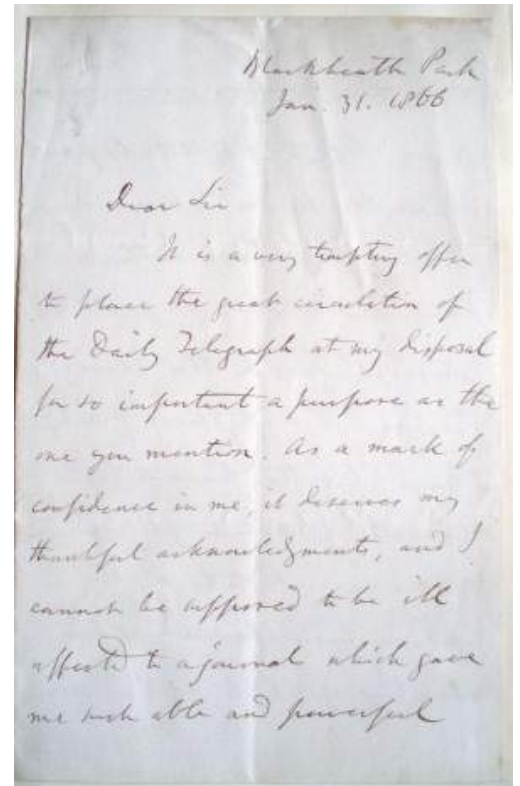 Blackheath Park
Jan. 31. 1866
Dear Sir
It is a very tempting offer
to place the great circulation of
the Daily Telegraph at my disposal
for so important a purpose as the
one you mention. As a mark of
confidence in me, it deserves my
thankful acknowledgments, and I
cannot be supposed to be ill
affected to a journal which gave
me such able and powerful